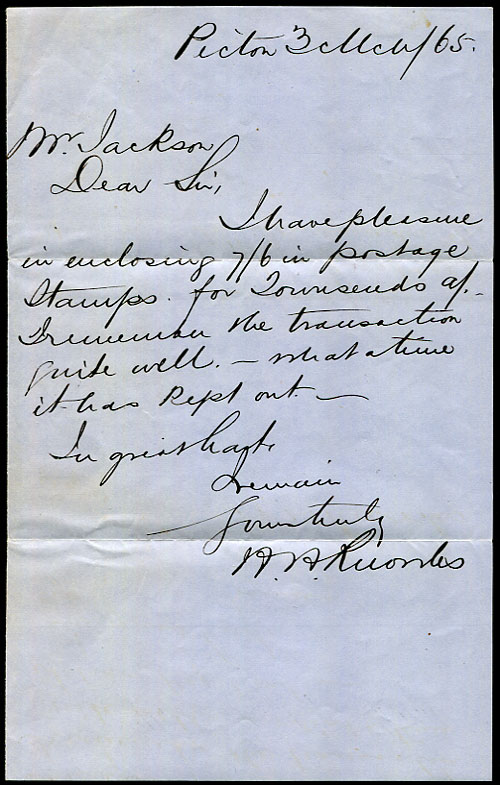 Picton 3 Mch/65.
Mr. Jackson
Dear Sir,
I have pleasure
in enclosing 7/6 in postage
Stamps. for Townsends a/.
I rememer the transaction
quite well. — what a time
it has kept out. —
In great haste
I remain
Yours truly